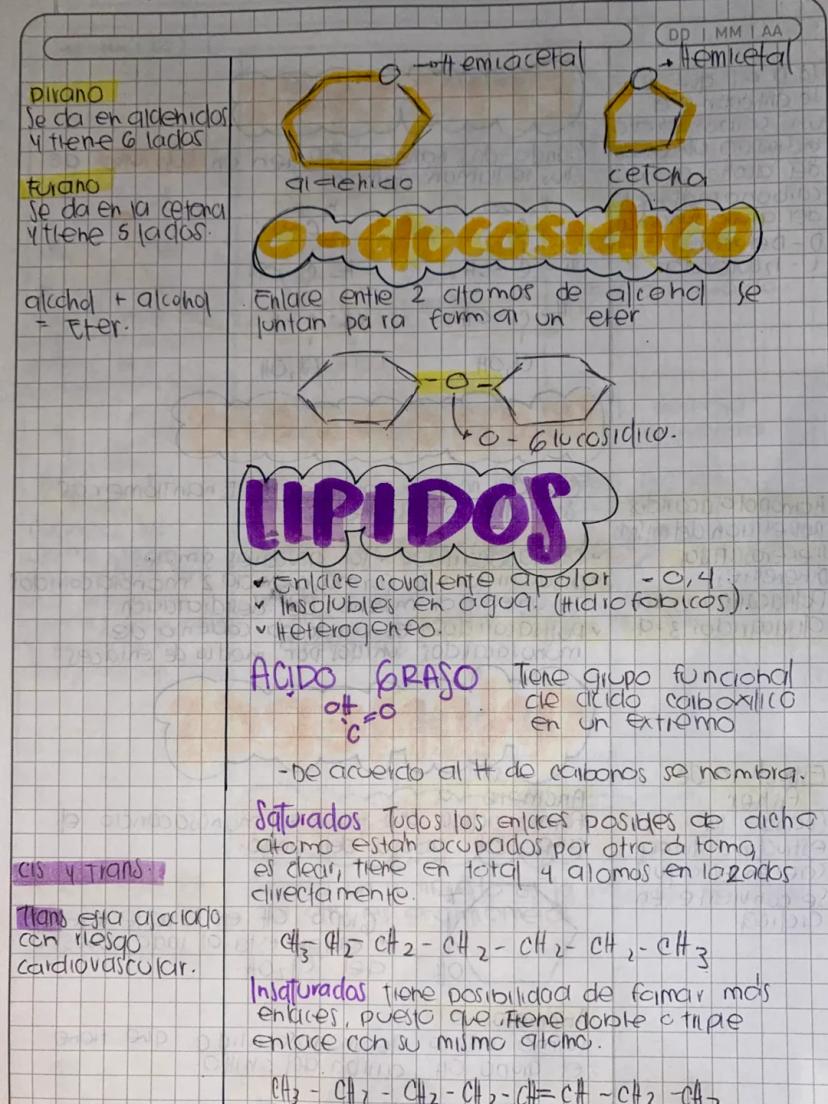 DD | MM | AA
Hemiacetal
Hemicetal
Pirano
Se da en aldehidos
y tiene 6 lados
O
O
aldehido
cetona
furano
se da en la cetona
y tiene 5 lados.
O-Glucosidico
alcohol + alcohol
= Eter.
Enlace entre 2 atomos de alcohol se
juntan para formar un eter
- O -
O - Glucosidico.
LIPIDOS
Enlace covalente apolar - 0,4.
Insolubles en agua. (Hidrofobicos).
Heterogeneo.
ACIDO GRASO
Tiene grupo funcional
de ácido carboxilico
en un extremo
OH
C=O
- De acuerdo al # de carbonos se nombra.
Saturados Todos los enlaces posibles de dicho
átomo estan ocupados por otro átomo,
es decir, tiene en total 4 atomos enlazados
directamente.
Cis y Trans.
Trans esta asociado
con riesgo
cardiovascular.
CH3- CH2- CH2 - CH2 - CH2 - CH2 - CH3
Insaturados tiene posibilidad de formar más
enlaces, puesto que tiene doble o triple
enlace con su mismo atomo.
CH3 - CH2 - CH2 - CH2 - CH = CH - CH2 - CH3